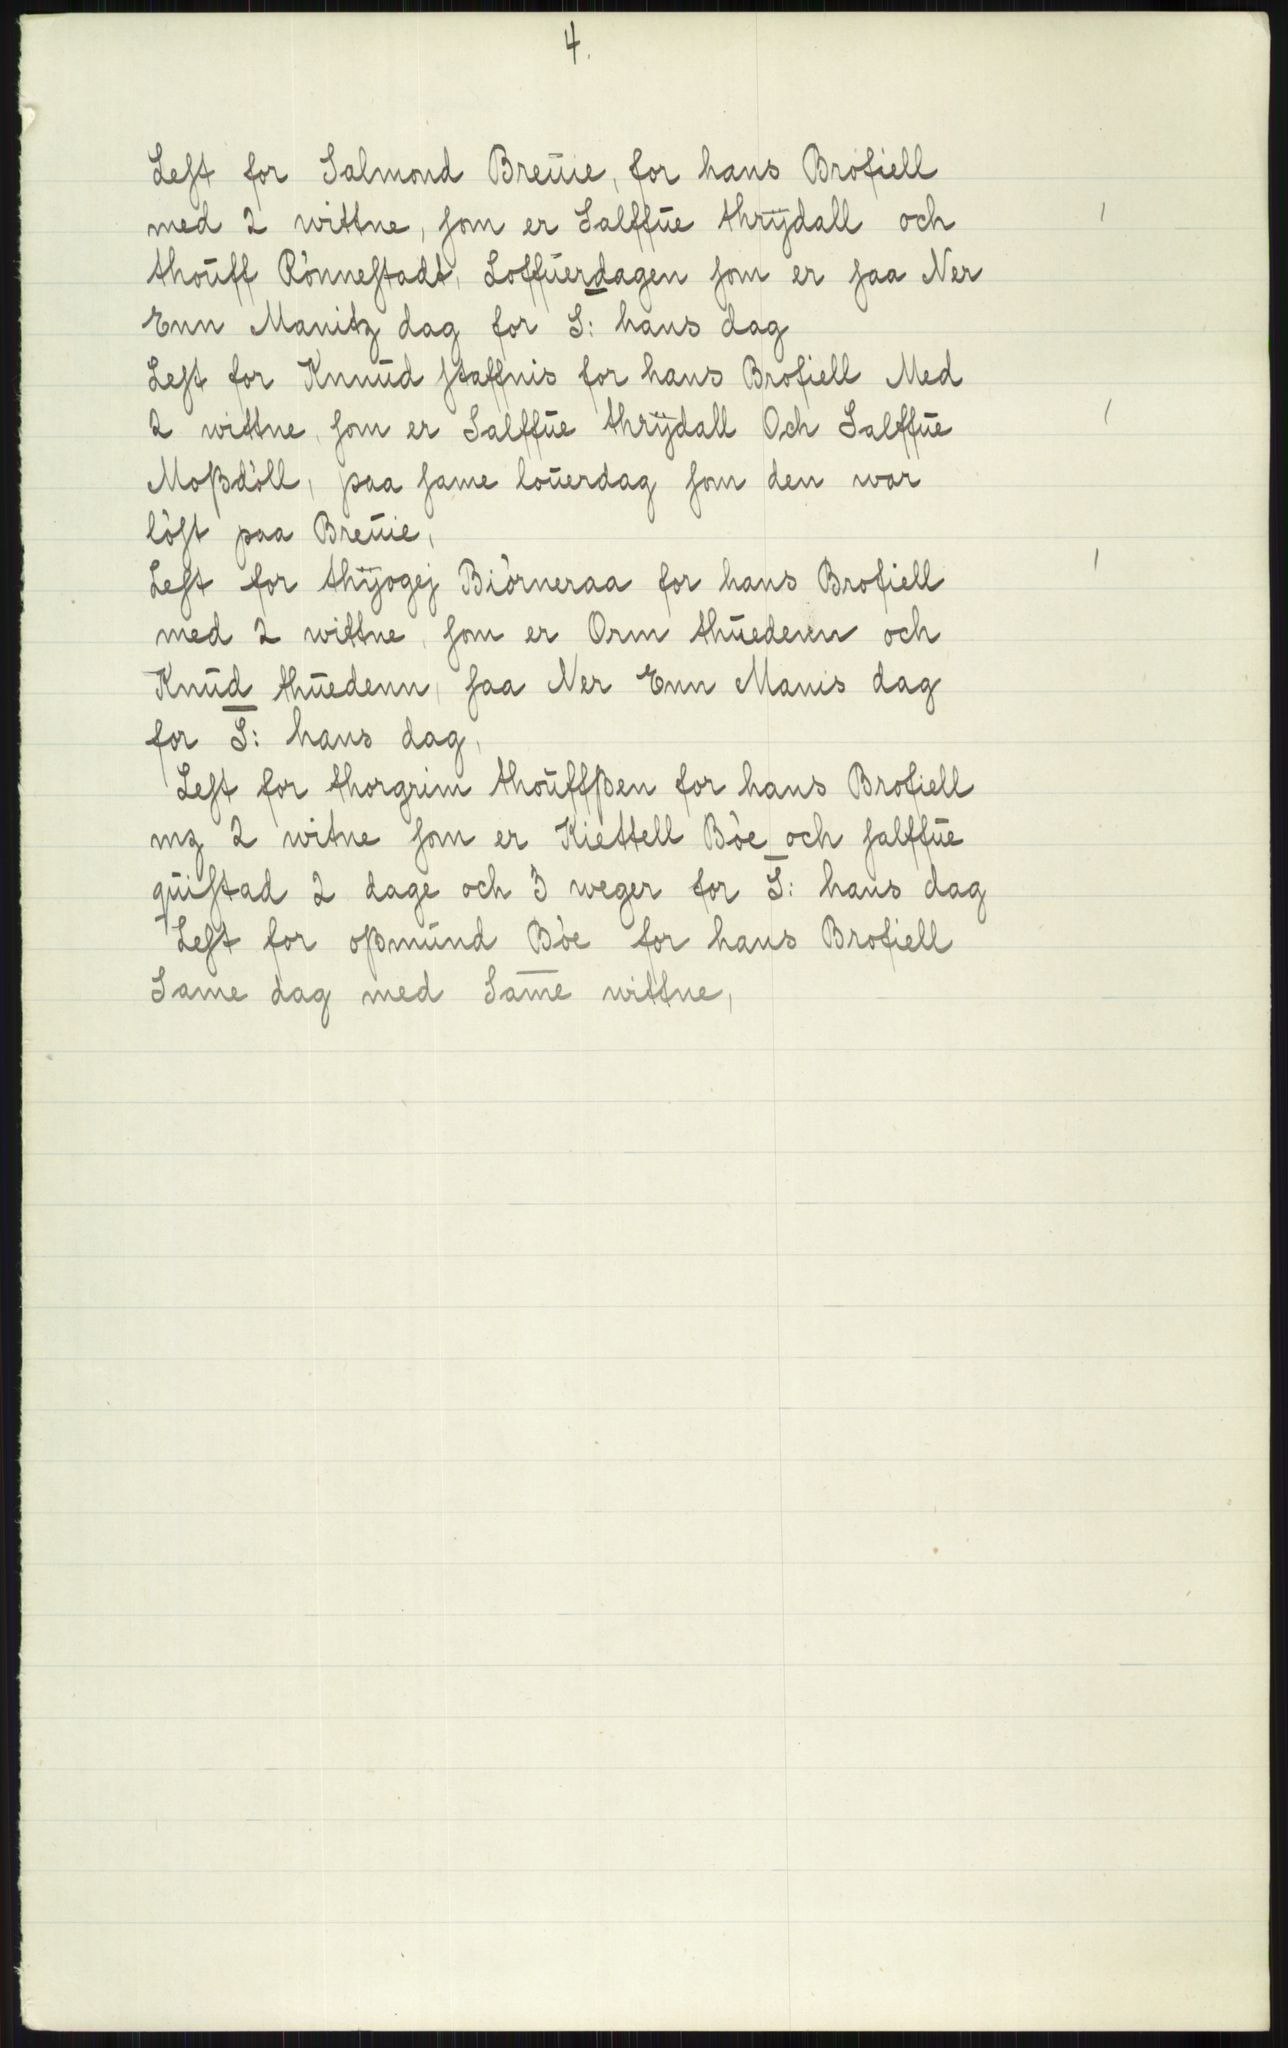 4.
Lest for Salmond Breuie, for hans Brofiell
med 2 wittne, som er Salffue thrÿdall och
thouff Rònnestadt, Loffuerdagen som er saa Ner
Enn Manitz dag for S: hans dag
Lest for Knuud staffnis for hans Brofiell Med
2 wittne, som er Salffue thrÿdall Och Salffue
Moßdòll, paa same louerdag som den war
lòst paa Breuie,
Lest for thÿogej Biòrneraa for hans Brofiell
med 2 wittne, som er Orm thuedenn och
Knud thuedenn, saa Ner Enn Manis dag
for S: hans dag,
Lest for thorgrim thouffßen for hans Brofiell
mz 2 witne som er Kiettell Bòe och salffue
quistad 2 dage och 3 weger for S: hans dag
Lest for oßmund Bòe for hans Brofiell
Same dag med Same wittne,